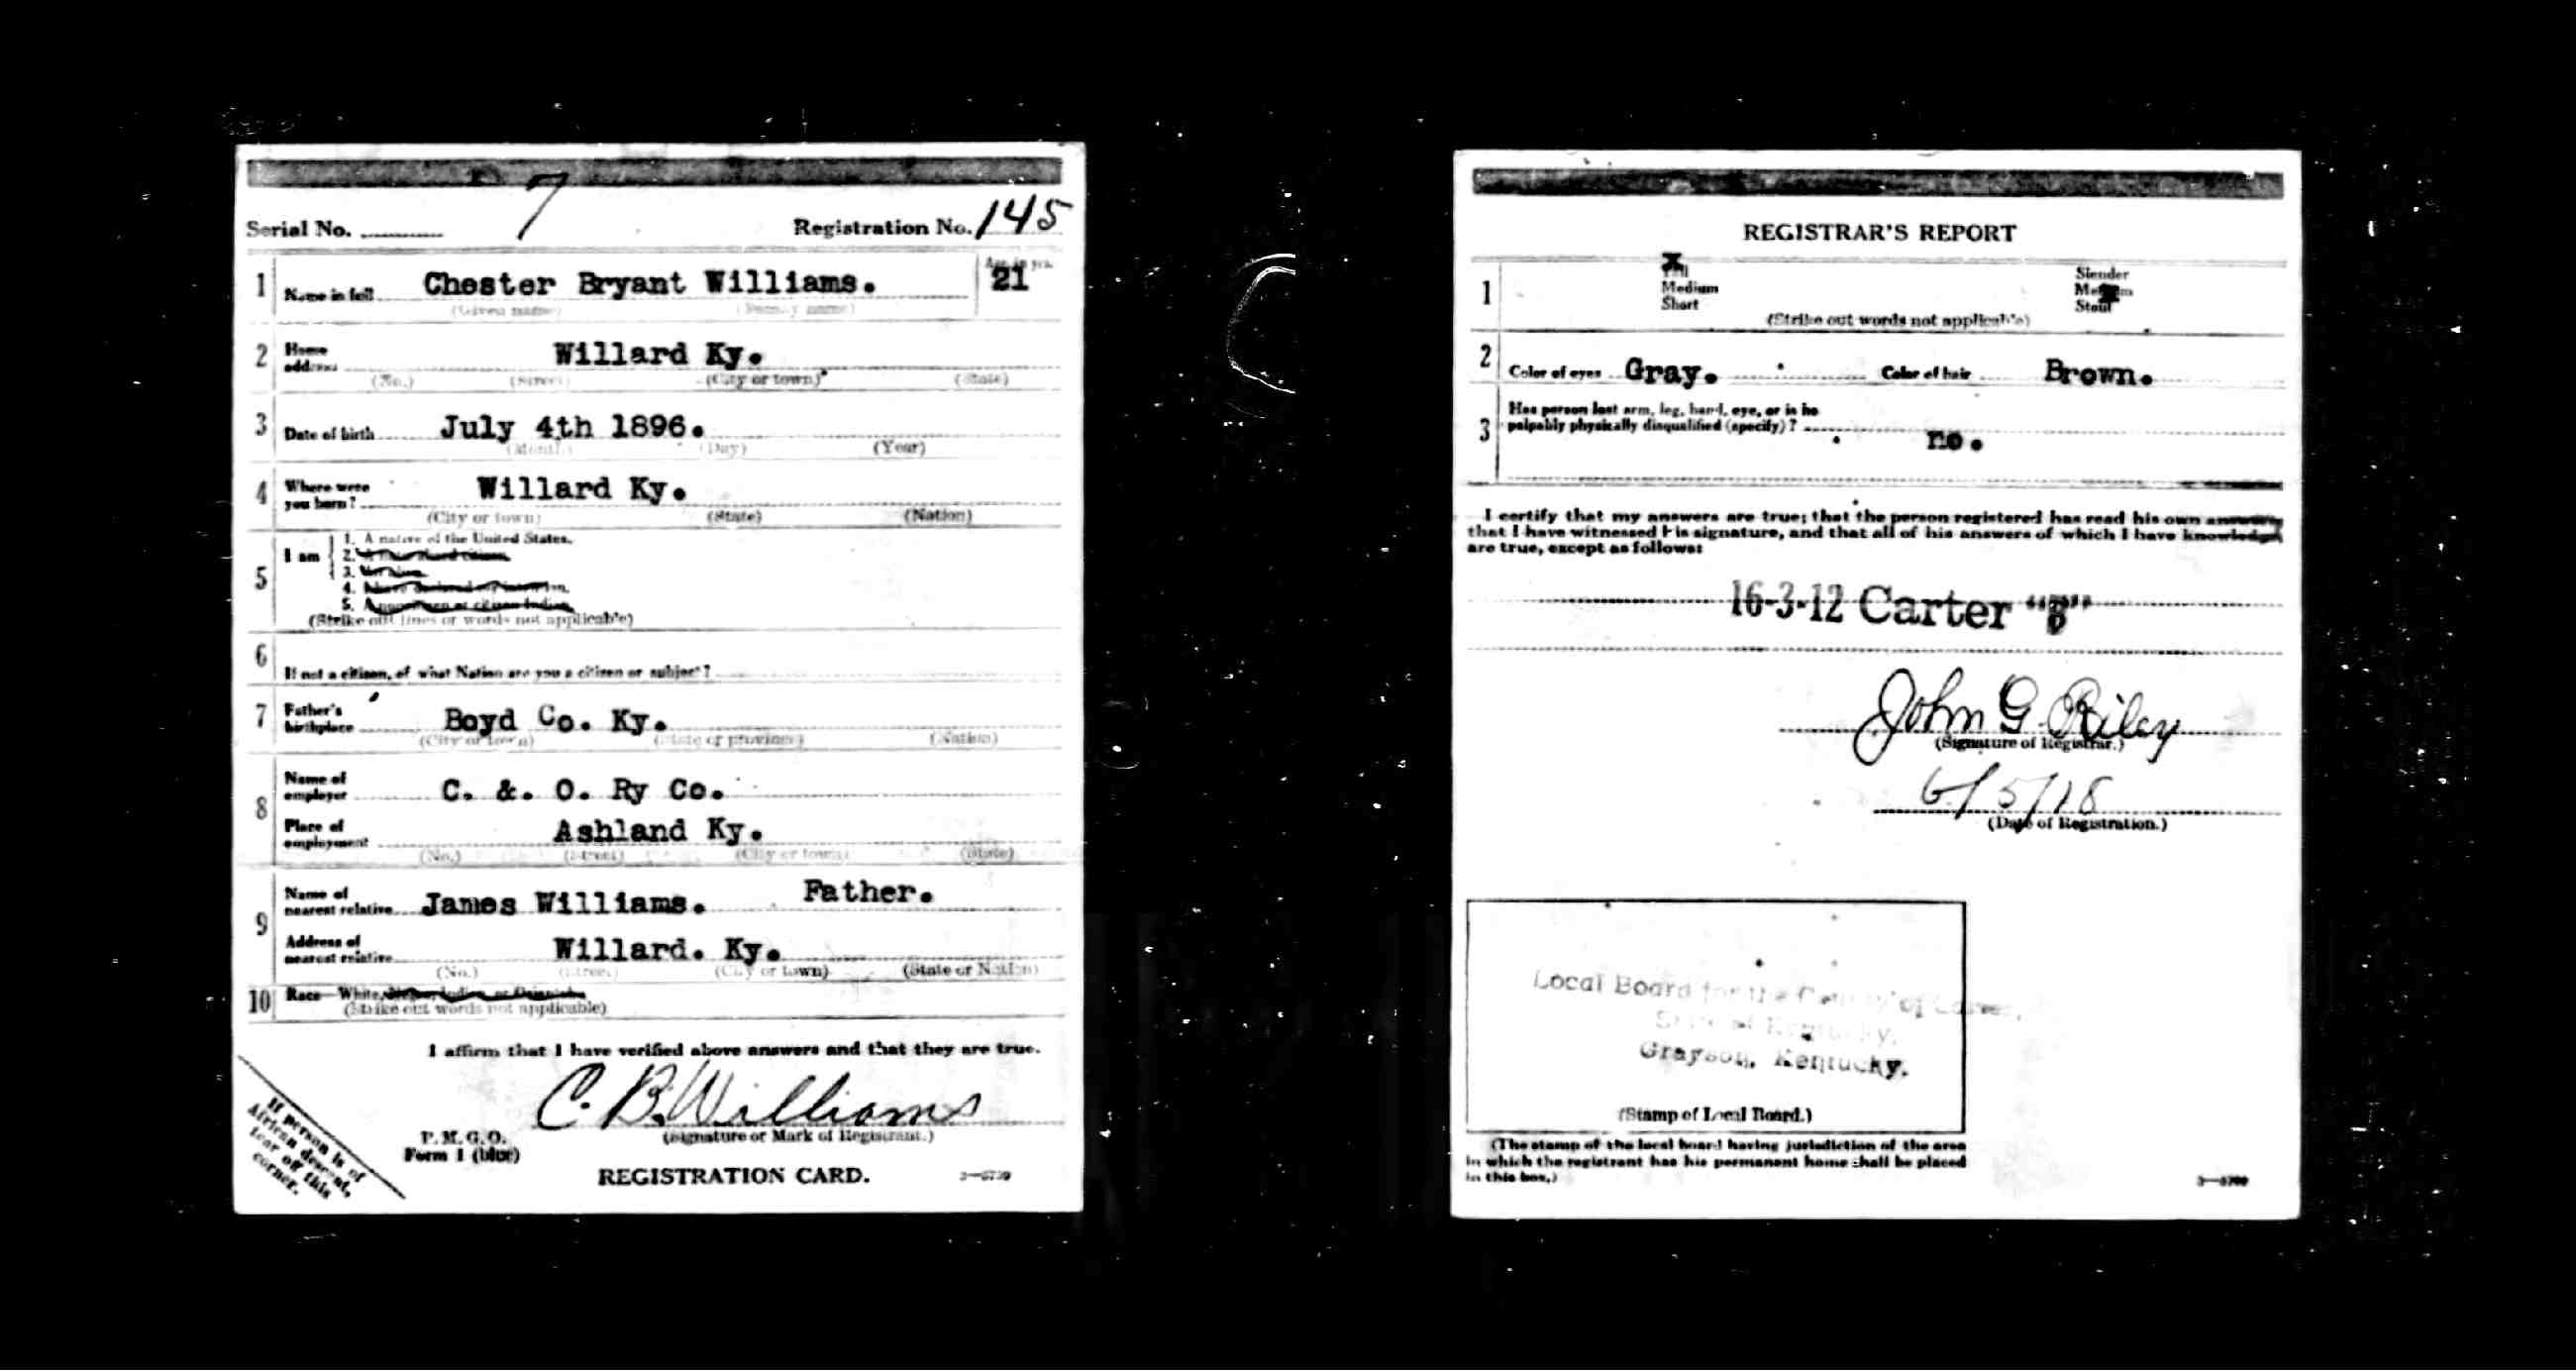 7
Serial No. Registration No. 145
1 Name in full Chester Bryant Williams. Age in yrs. 21
(Given name) (Family name)
2 Home address Willard Ky.
(No.) (Street) (City or town) (State)
3 Date of birth July 4th 1896.
(Month) (Day) (Year)
4 Where were you born? Willard Ky.
(City or town) (State) (Nation)
5 I am
1. A native of the United States.
2.
3.
4.
5.
(Strike out lines or words not applicable)
6 If not a citizen, of what Nation are you a citizen or subject?
7 Father's birthplace Boyd Co. Ky.
(City or town) (State or province) (Nation)
8 Name of employer C. &. O. Ry Co.
Place of employment Ashland Ky.
(No.) (Street) (City or town) (State)
9 Name of nearest relative James Williams. Father.
Address of nearest relative Willard. Ky.
(No.) (Street) (City or town) (State or Nation)
10 Race—White,
(Strike out words not applicable)
I affirm that I have verified above answers and that they are true.
C. B. Williams
(Signature or Mark of Registrant.)
P. M. G. O.
Form 1 (blue)
REGISTRATION CARD.
If person is of
African descent,
tear off this
corner.
REGISTRAR'S REPORT
1 x Slender
Medium Medium
Short Stout
(Strike out words not applicable)
2 Color of eyes Gray. Color of hair Brown.
3 Has person lost arm, leg, hand, eye, or is he
palpably physically disqualified (specify)? no.
I certify that my answers are true; that the person registered has read his own answers,
that I have witnessed his signature, and that all of his answers of which I have knowledge
are true, except as follows:
16-3-12 Carter "B"
John G. Riley
(Signature of Registrar.)
6/5/18
(Date of Registration.)
Local Board for the County of Carter,
State of Kentucky,
Grayson, Kentucky.
(Stamp of Local Board.)
(The stamp of the local board having jurisdiction of the area
in which the registrant has his permanent home shall be placed
in this box.)